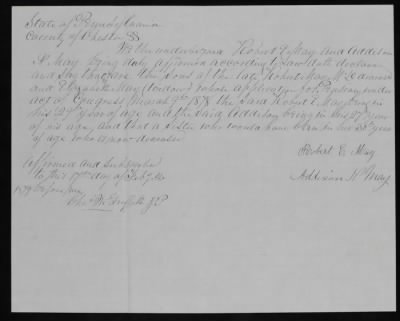 State of Pennsylvania
County of Chester SS
We the undersigned Robert E May And Addison
H May being duly affirmed according to law doth declare
and Say that are the Sons of the late Robert May M.D. deceased
and Elizabeth May (widow) whose application for Pension under
act of Congress March 9th 1878 the said Robert E May being in
his 29th year of age and the said Addison being in his 27th year
of his age, and that a Sister who would have been in her 33rd year
of age who is now deceased
Robert E. May
Addison H May
Affirmed and Subscribed
to this 17th day of Feby AD
1879 before me
Griffith J.P.